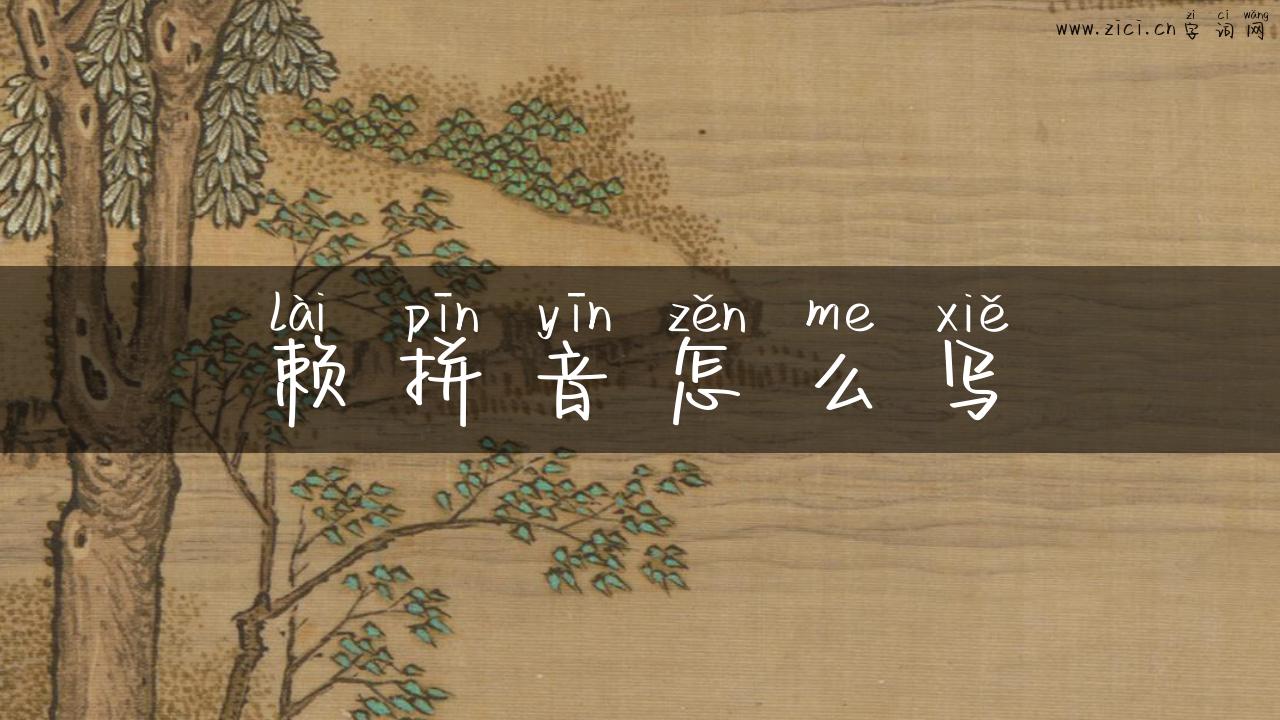 zì cí wǎng
www.zici.cn 字 词 网
lài pīn yīn zěn me xiě
赖 拼 音 怎 么 写